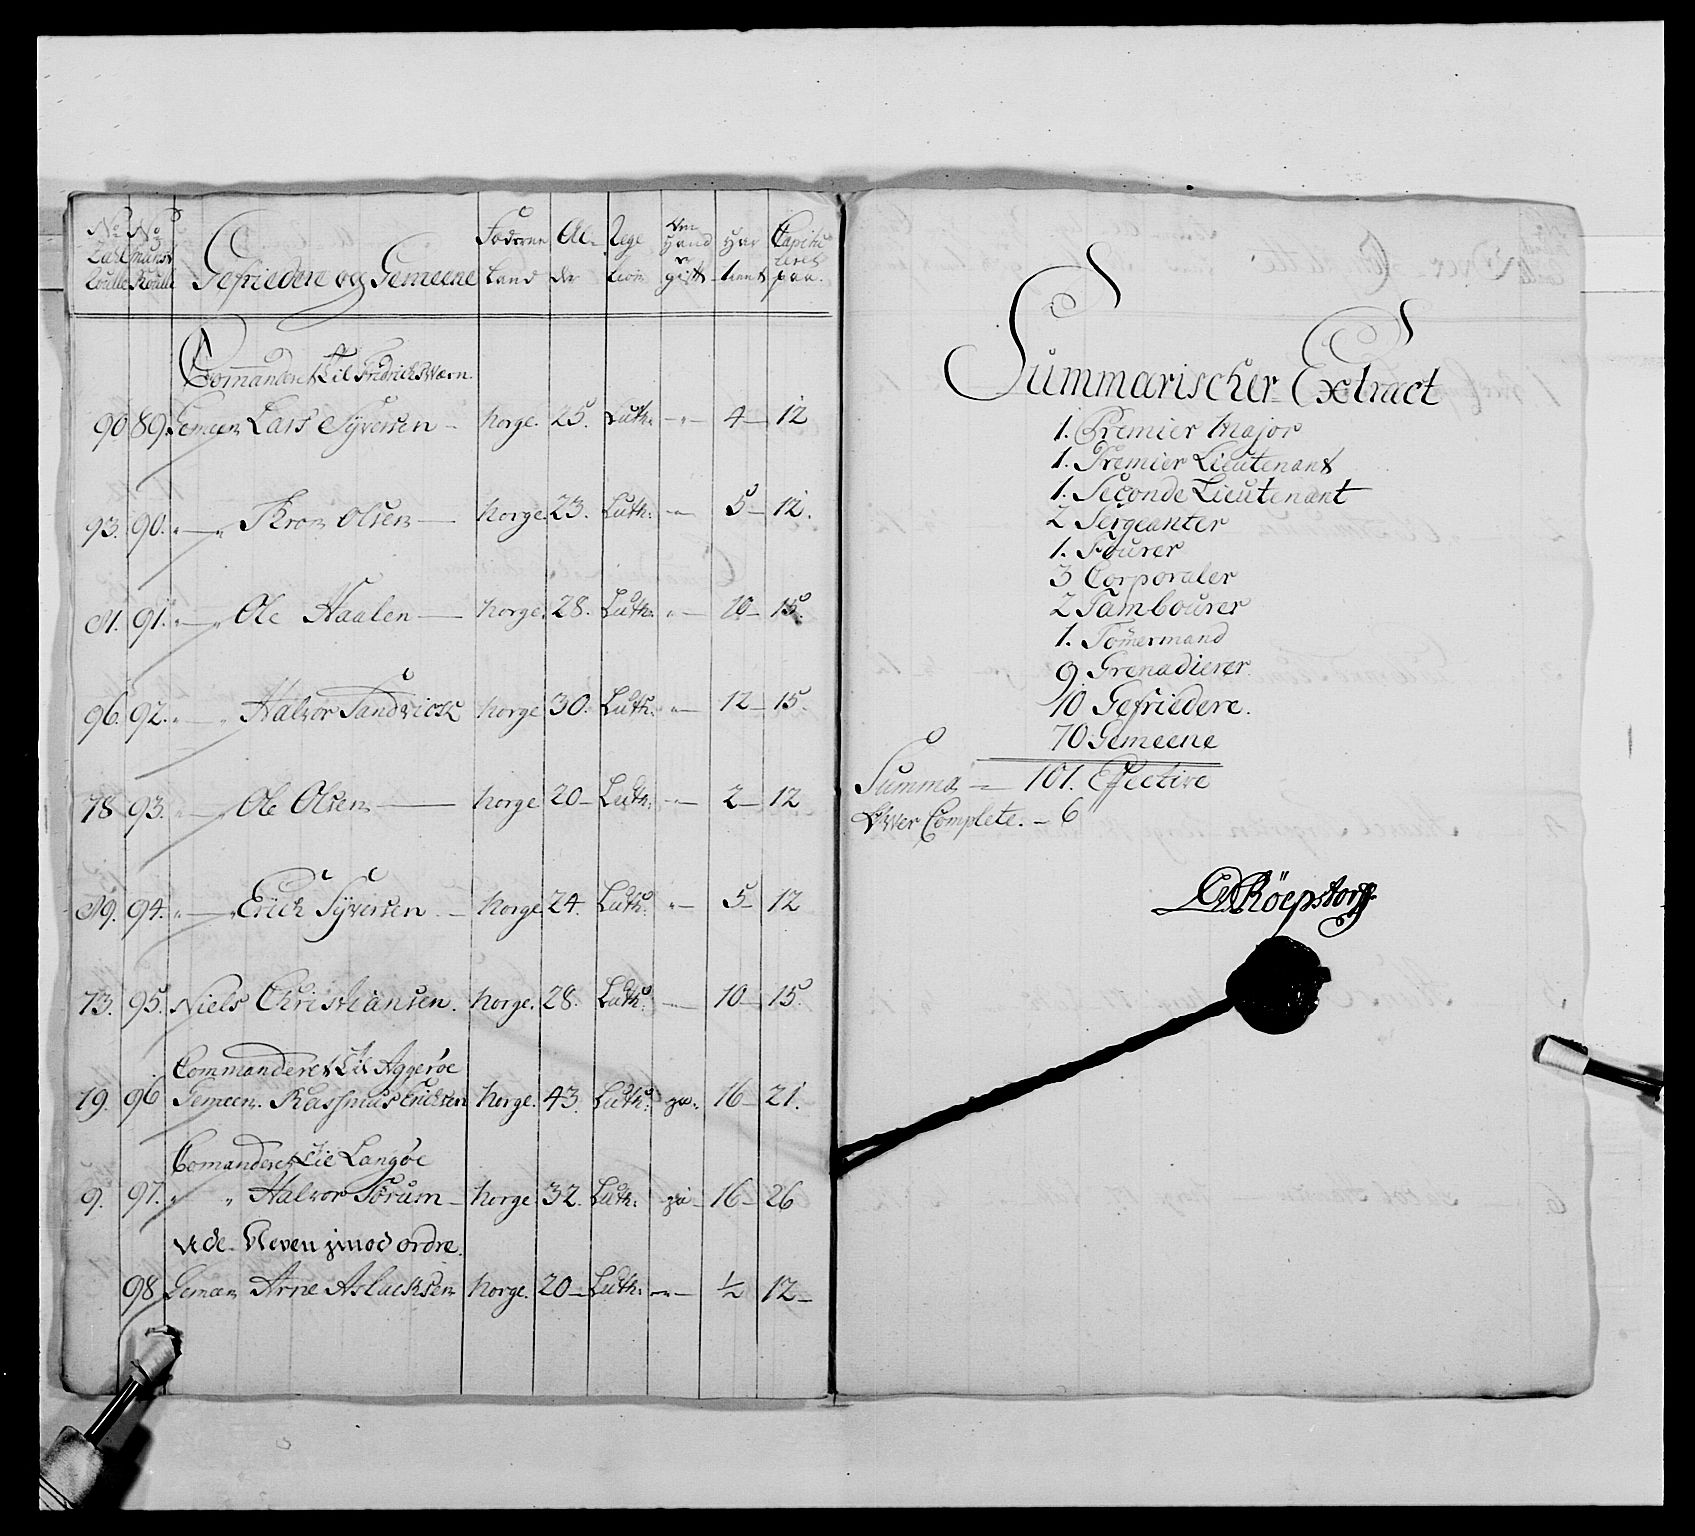 No No
Gefriedere og Gemeene
Foderne Land
Al- der
Rege lion
Har tient
Capitu leret paa.
Comanderet Til Fredrichs Wærn.
90 89. Gemeen Lars Syversen - Norge. 25. Luth: - " - 4 - 12
93. 90. " — " Kron Olsen — Norge. 23. Luth: - " - 5 - 12.
91. " — " Ole Haalen — Norge. 28. Luth: " - 10 - 15.
96. 92. " — " Halvor Sandvick Norge 30. Luth: - " - 12 - 15.
78 93. " — " Ole Olsen — Norge 20 - Luth: - " - 2 - 12
94. " — " Erich Syversen - Norge 24. Luth: " - 5 - 12
73. 95. Niels Christiansen. Norge. 28. Luth: - " - 10 - 15.
Commanderet til Aggerøe
79. 96 Gemeen. Rasmus Erichsen Norge. 43. Luth: ja. 16 - 21.
Comanderet Til Langøe
9. 97. " " Halvor Sørum - Norge. 32. Luth: ja - 16 - 26
Neven imod ordre.
98 Gemeen Arne Aslachsen Norge. 20 - Luth: - " - ½ 12 -
Summarischer Extract
1. Premier Major
1. Premier Lieutenant
1. Seconde Lieutenant
2 Sergeanter
1. Fourer
3 Corporaler
2 Tambourer
1. Tömermand
9 Grenadierer
10 Gefriedere.
70 Gemeene
Summa — 101. Effective
Over Complete. - 6
Röepstorff